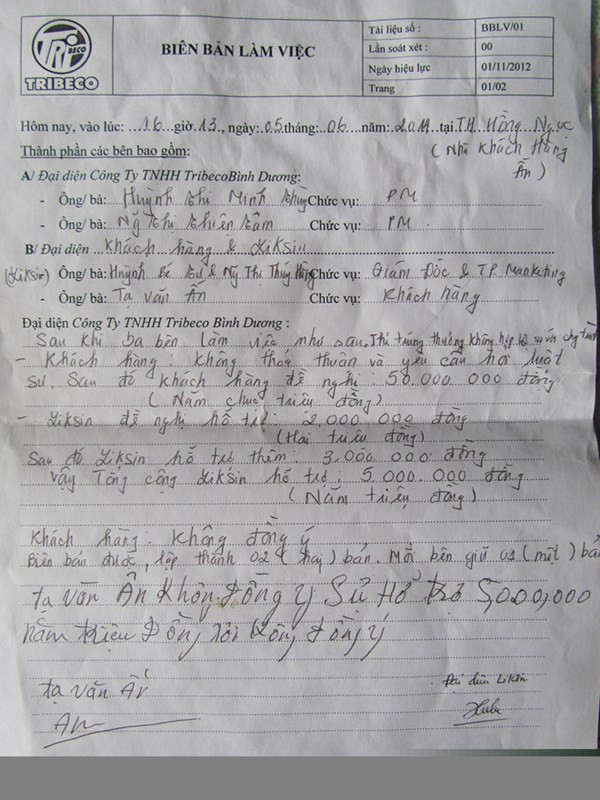 TRI BECO
TRIBECO
BIÊN BẢN LÀM VIỆC
Tài liệu số : BBLV/01
Lần soát xét : 00
Ngày hiệu lực 01/11/2012
Trang 01/02
Hôm nay, vào lúc: 16 giờ 13, ngày: 05 tháng: 06 năm: 2014 tại TH Hồng Ngực
Thành phần các bên bao gồm: (Nhà Khách Hàng
Ấn)
A/ Đại diện Công Ty TNHH TribecoBình Dương:
- Ông/ bà: Huỳnh thị Minh thùy Chức vụ: PM
- Ông/ bà: Ng thị thiên tâm Chức vụ: PM
B/ Đại diện Khách hàng & Liksin
(Liksin) Ông/ bà: Huỳnh & Ng Thị Thúy Hằng Chức vụ: Giám Đốc & T.P. Marketing
- Ông/ bà: Tạ Văn Ấn Chức vụ: Khách hàng
Đại diện Công Ty TNHH Tribeco Bình Dương :
Sau khi ba bên làm việc như sau. Thì trúng thưởng không hợp lệ so với
- Khách hàng : không thỏa thuận và yêu cầu hỏi luật
sư. Sau đó khách hàng đề nghị : 50.000 000 đồng
(Năm chục triệu đồng)
- Liksin đề nghị hổ trợ : 2.000 000 đồng
(Hai triệu đồng)
Sau đó Liksin hổ trợ thêm : 3.000 000 đồng
Vậy Tổng cộng Liksin hổ trợ : 5 000 000 đồng
(Năm triệu đồng)
Khách hàng : không đồng ý
Biên bản được lập thành 02 (hay) bản. Mỗi bên giữ 01 (một) bản
tạ văn Ân Không Đồng ý Sự Hổ trợ 5,000,000
năm triệu Đồng tôi không Đồng ý
tạ văn Ân
Đại diện Liksin